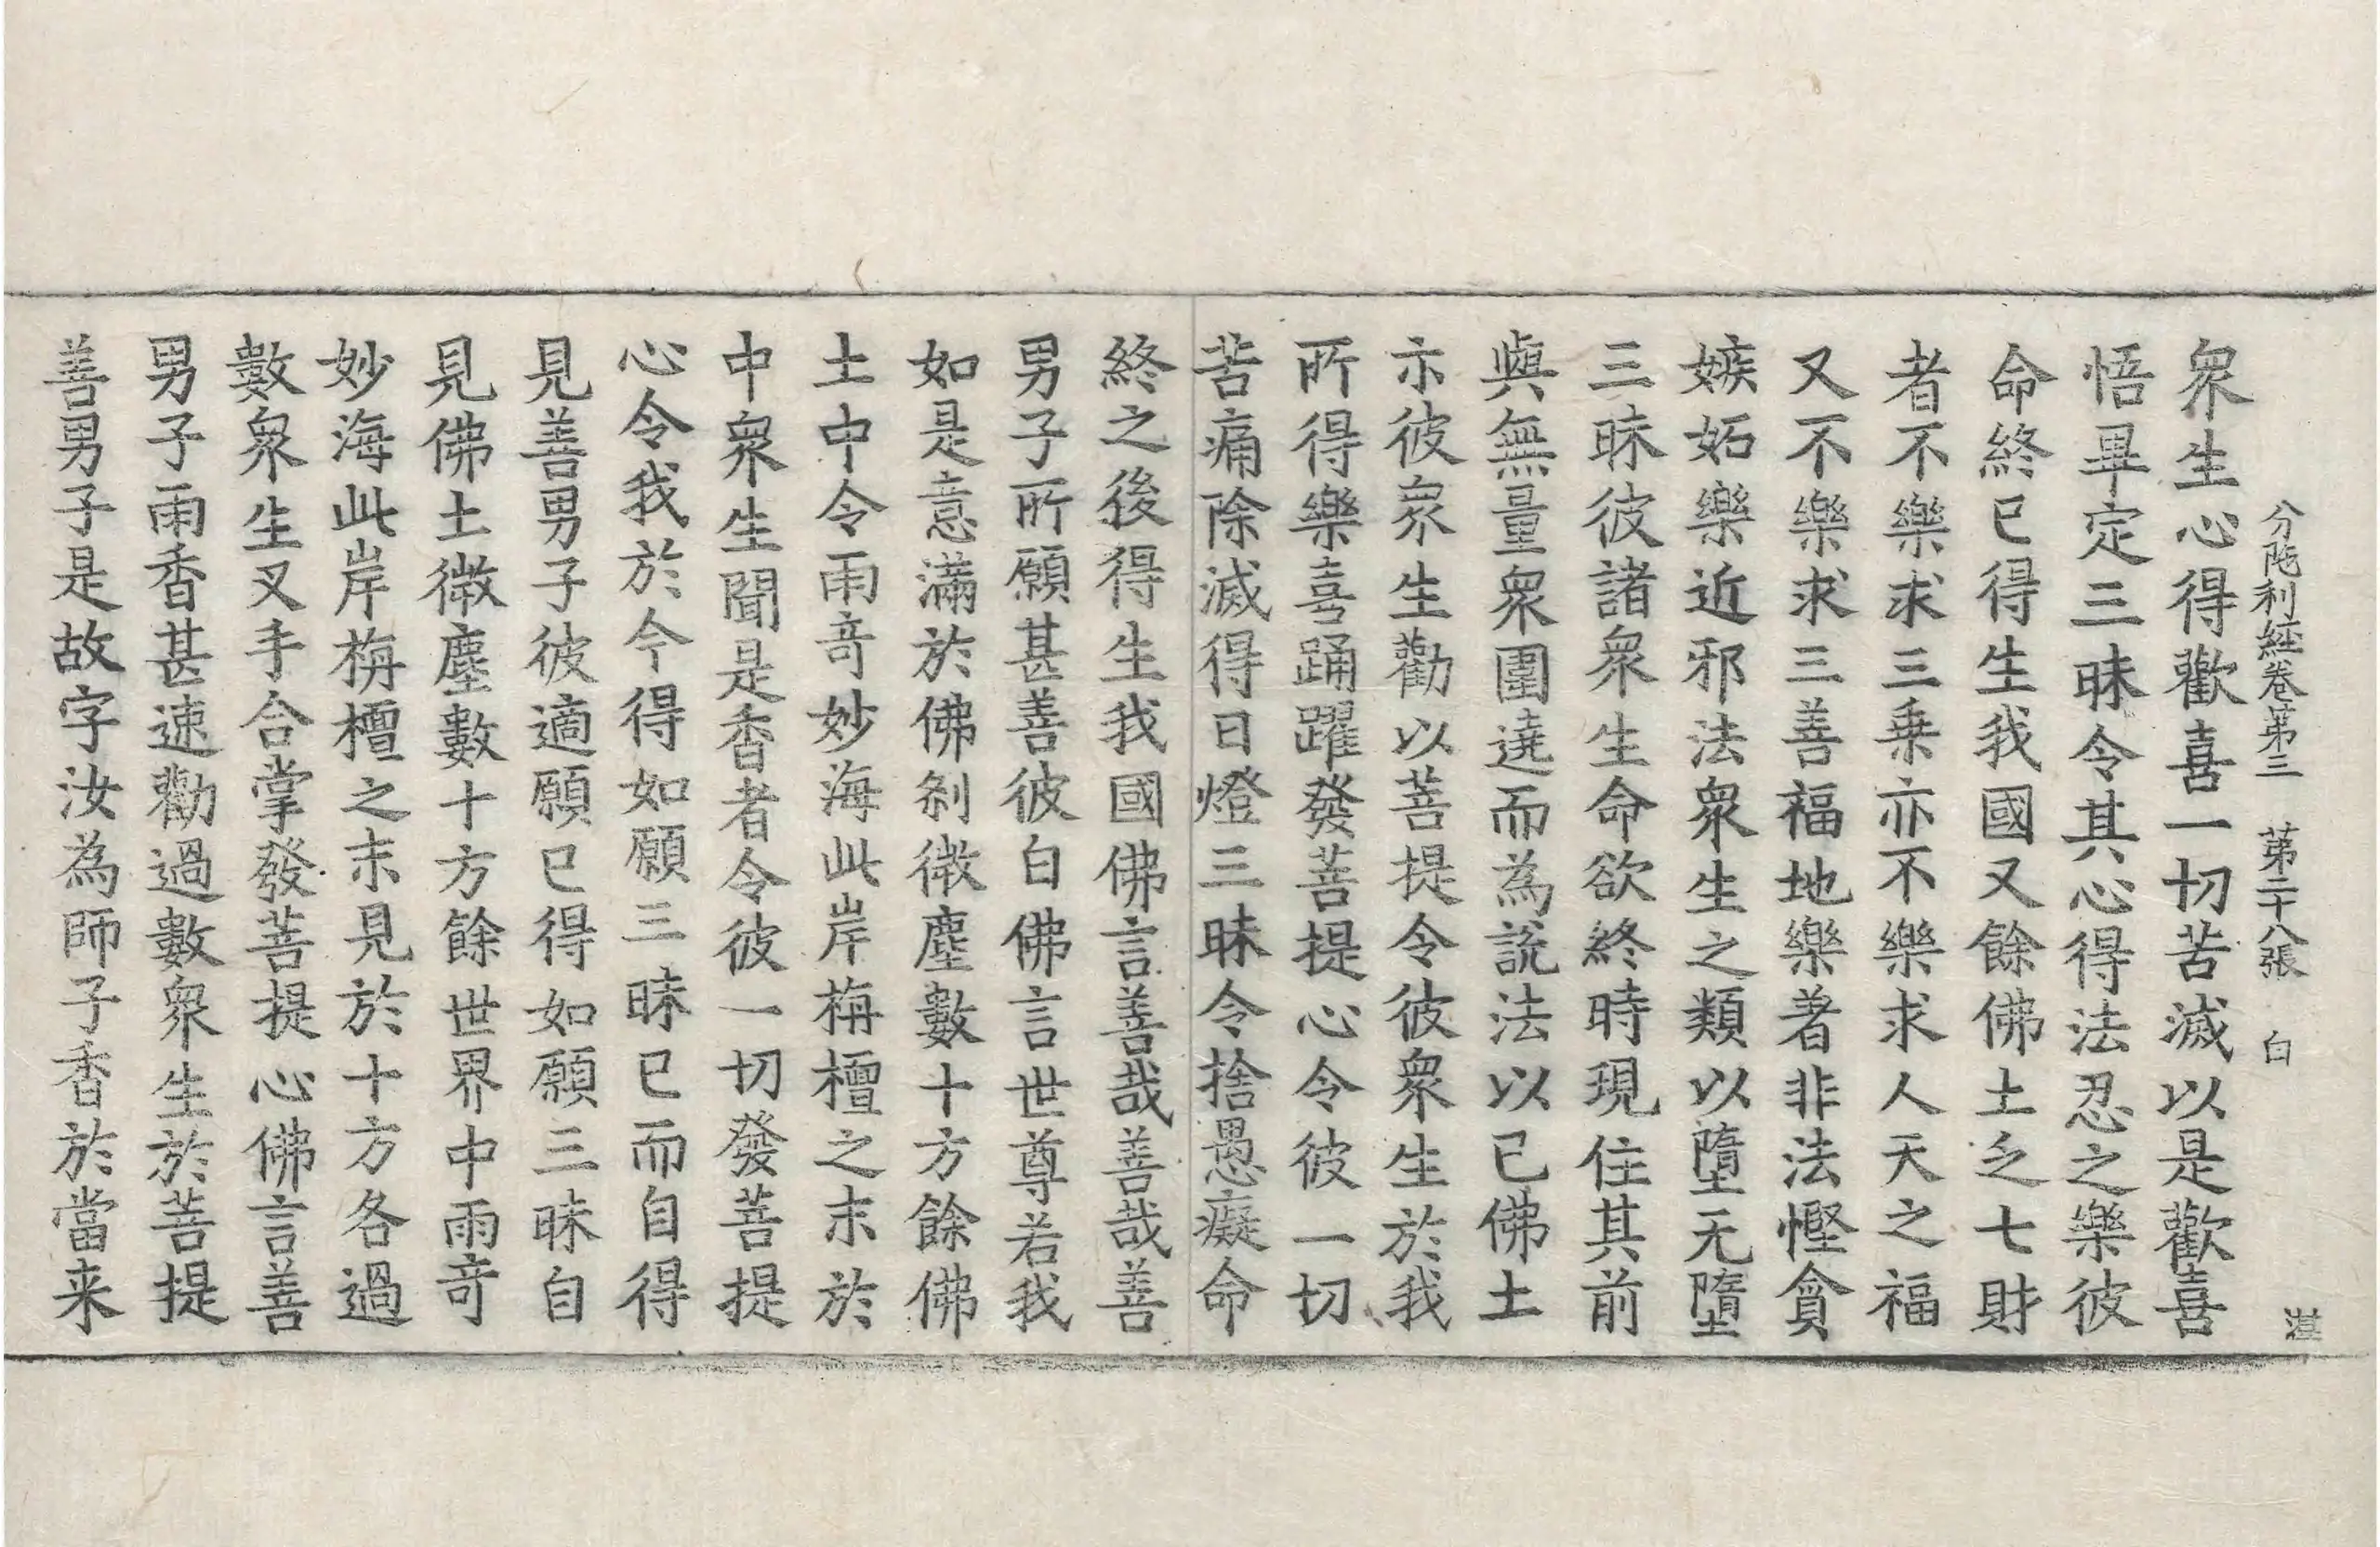 分陁利經卷第三　第二十八張　白
衆生心得歡喜一切苦滅以是歡喜
悟畢定三昧令其心得法忍之樂彼
命終已得生我國又餘佛土乏七財
者不樂求三乗亦不樂求人天之福
又不樂求三善福地樂著非法慳貪
嫉妬樂近邪法衆生之類以墮无墮
三昧彼諸衆生命欲終時現住其前
與無量衆圍遶而為說法以已佛土
示彼衆生勸以菩提令彼衆生於我
所得樂喜踊躍發菩提心令彼一切
苦痛除滅得日燈三昧令捨愚癡命
終之後得生我國佛言善哉善哉善
男子所願甚善彼白佛言世尊若我
如是意滿於佛剎微塵數十方餘佛
土中令雨竒妙海此岸栴檀之末於
中衆生聞是香者令彼一切發菩提
心令我於今得如願三昧已而自得
見善男子彼適願已得如願三昧自
見佛土微塵數十方餘世界中雨竒
妙海此岸栴檀之末見於十方各過
數衆生叉手合掌發菩提心佛言善
男子雨香甚速勸過數衆生於菩提
善男子是故字汝為師子香於當来